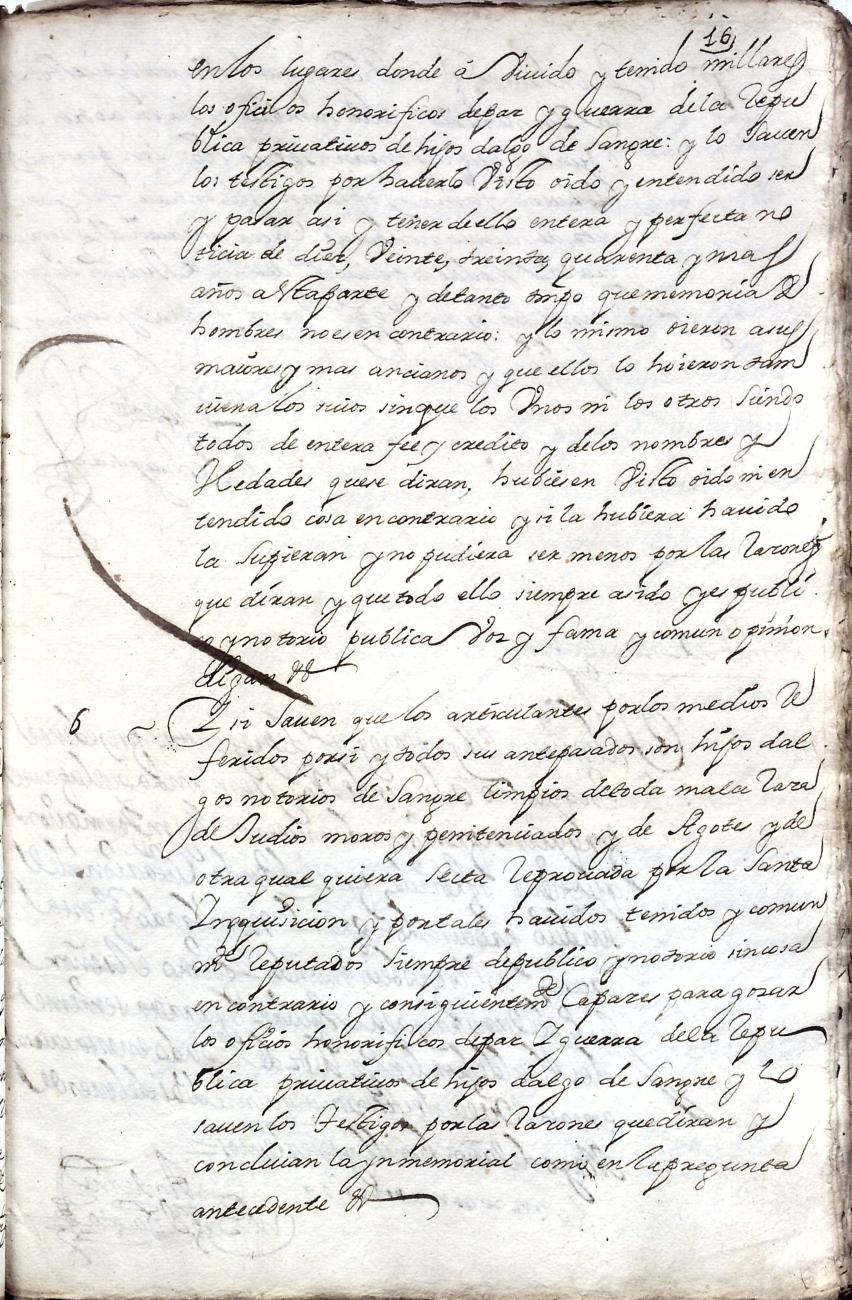 16
en los lugares donde á Viuido y tenido millares
los oficios honorificos de paz y guerra de la Repu
blica priuatiuos de hijos dalgo de Sangre: y lo Sauen
los testigos por hauerlo Visto oido y entendido ser
y pasar asi y tener de ello entera y perfecta no
ticia de diez, Veinte, treinta, quarenta y mas
años a esta parte y de tanto tmpo que memoria de
hombres no es en contrario: y lo mismo oieron a sus
maiores y mas ancianos y que ellos lo hoieron tam
uien a los suios sin que los Vnos ni los otros Siendo
todos de entera fee y credito y de los nombres y
Hedades que se diran, hubiesen Visto oido ni en
tendido cosa en contrario y si la hubiera hauido
la Supieran y no pudiera ser menos por las Razones
que diran y que todo ello siempre a sido y es publi
co y notorio publica Voz y fama y comun opinion
digan &
6 Y si Sauen que los articulantes por los medios Re
feridos por si y todos sus antepasados son hijos dal
gos notorios de Sangre limpios de toda mala Raza
de Judios moros y penitenciados y de Agotes y de
otra qual quiera Secta Reprouada por la Santa
Inquisicion y por tales hauidos tenidos y comun
mte Reputados Siempre de publico y notorio sin cosa
en contrario y consiguientemte Capazes para gozar
los oficios honorificos de paz Y guerra de la Repu
blica priuatiuos de hijos dalgo de Sangre y lo
sauen los testigos por las Razones que diran y
concluian la Ynmemorial como en la pregunta
antecedente &